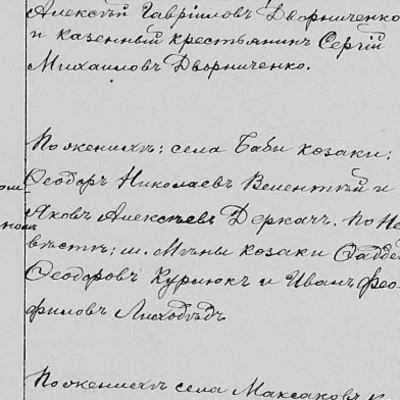 Алексѣй Гавріиловъ Дворниченко
и казенный крестьянинъ Сергій
Михаиловъ Дворниченко.
По женихѣ: села Бабы козаки:
Ѳеодоръ Николаевъ Велентѣй и
Яковъ Алексѣевъ Деркачъ. По не
вѣстѣ: м. Мѣны козаки Ѳадде
Ѳеодоровъ Курлюкъ и Иванъ Ѳео
филовъ Лиходѣдъ
По женихѣ села Максаковъ к